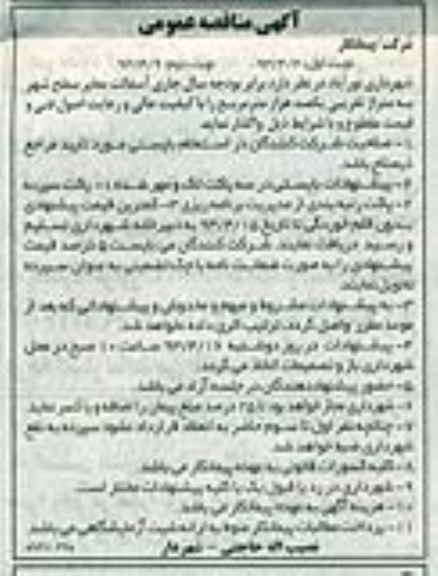 آگهی مناقصه عمومی
شرکت پیمانکار
نوبت اول: ۹۳/۳/۳ نوبت دوم: ۹۳/۳/۹
شهرداری نورآباد در نظر دارد برابر بودجه سال جاری آسفالت معابر سطح شهر
به متراژ تقریبی یکصد هزار مترمربع را با کیفیت عالی و رعایت اصول فنی و
قیمت مقطوع و با شرایط ذیل واگذار نماید.
۱- صلاحیت شرکت کنندگان در استعلام بایستی مورد تایید مراجع
ذیصلاح باشد.
۲- پیشنهادات بایستی در سه پاکت لاک و مهر شده ۱- پاکت سپرده
۲- پاکت رتبه بندی از مدیریت برنامه ریزی ۳- کمترین قیمت پیشنهادی
بدون قلم خوردگی تا تاریخ ۹۳/۳/۱۵ به دبیرخانه شهرداری تسلیم
و رسید دریافت نمایند. شرکت کنندگان می بایست ۵ درصد قیمت
پیشنهادی را به صورت ضمانت نامه یا چک تضمینی به عنوان سپرده
تحویل نمایند.
۳- به پیشنهادات مشروط و مبهم و مخدوش و پیشنهاداتی که بعد از
موعد مقرر واصل گردد، ترتیب اثری داده نخواهد شد.
۴- پیشنهادات در روز دوشنبه ساعت ۱۰ صبح در محل
شهرداری باز و تصمیمات اتخاذ می گردد.
۵- حضور پیشنهاددهندگان در جلسه آزاد می باشد.
۶- شهرداری مجاز خواهد بود تا ۲۵ درصد مبلغ پیمان را اضافه و یا کسر نماید.
۷- چنانچه نفر اول تا سوم حاضر به انعقاد قرارداد نشود سپرده به نفع
شهرداری ضبط خواهد شد.
۸- کلیه کسورات قانونی به عهده پیمانکار می باشد.
۹- شهرداری در رد یا قبول یک یا کلیه پیشنهادات مختار است.
۱۰- هزینه آگهی به عهده پیمانکار می باشد.
۱۱- پرداخت مطالبات پیمانکار منوط به ارائه شیت آزمایشگاهی می باشد.
نصیب اله حاجتی - شهردار